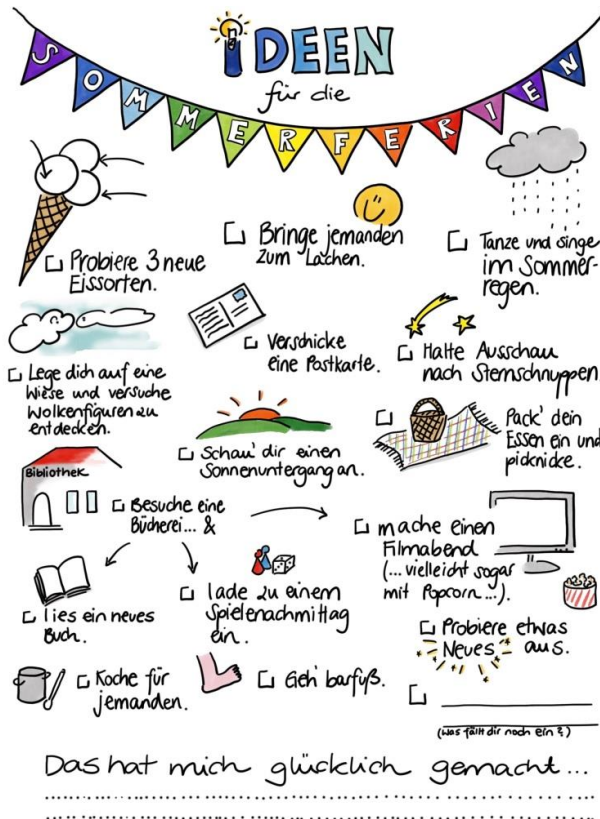 iDEEN
für die
SOMMERFERIEN
Probiere 3 neue
Eissorten.
Bringe jemanden
zum Lachen.
Tanze und singe
im Sommer-
regen.
Lege dich auf eine
Wiese und versuche
Wolkenfiguren zu
entdecken.
Verschicke
eine Postkarte.
Halte Ausschau
nach Sternschnuppen
Schau' dir einen
Sonnenuntergang an.
Pack' dein
Essen ein und
picknicke.
Bibliothek
Besuche eine
Bücherei... &
mache einen
Filmabend
(...vielleicht sogar
mit Popcorn...).
lies ein neues
Buch.
lade zu einem
Spielenachmittag
ein.
Probiere etwas
Neues aus.
Koche für
jemanden.
Geh' barfuß.
(was fällt dir noch ein?)
Das hat mich glücklich gemacht...